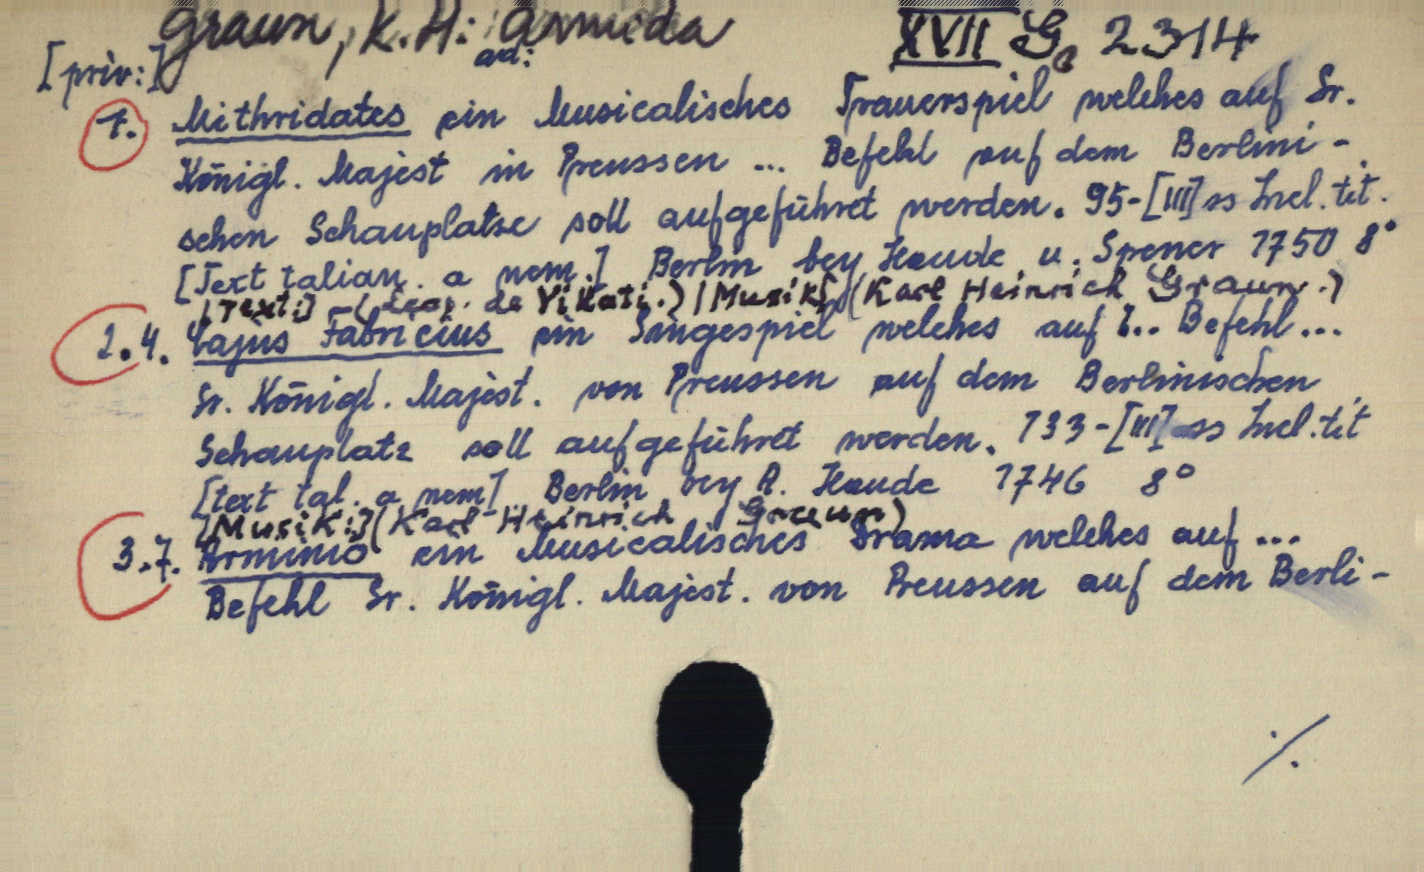 Graun, K. H: Armida XVII G. 2314
[priv:] ad:
1. Mithridates ein Musicalisches Trauerspiel welches auf Sr.
Königl. Majest in Preussen ... Befehl auf dem Berlini-
schen Schauplatze soll aufgeführet werden. 95-[III] ss Incl. tit.
[Text talian. a nem.] Berlin bey Haude u. Spener 1750 8°
[Text:] (Leop. de Villati.) [Musik:] (Karl Heinrich Graun.)
2.4. Cajus Fabricius ein Singespiel welches auf ... Befehl ...
Sr. Königl. Majest. von Preussen auf dem Berlinischen
Schauplatz soll aufgeführet werden. 133-[III] ss Incl. tit
[text tal. a nem] Berlin bey A. Haude 1746 8°
[Musik:] (Karl Heinrich Graun)
3.7. Arminio ein Musicalisches Drama welches auf ...
Befehl Sr. Königl. Majest. von Preussen auf dem Berli-
./.